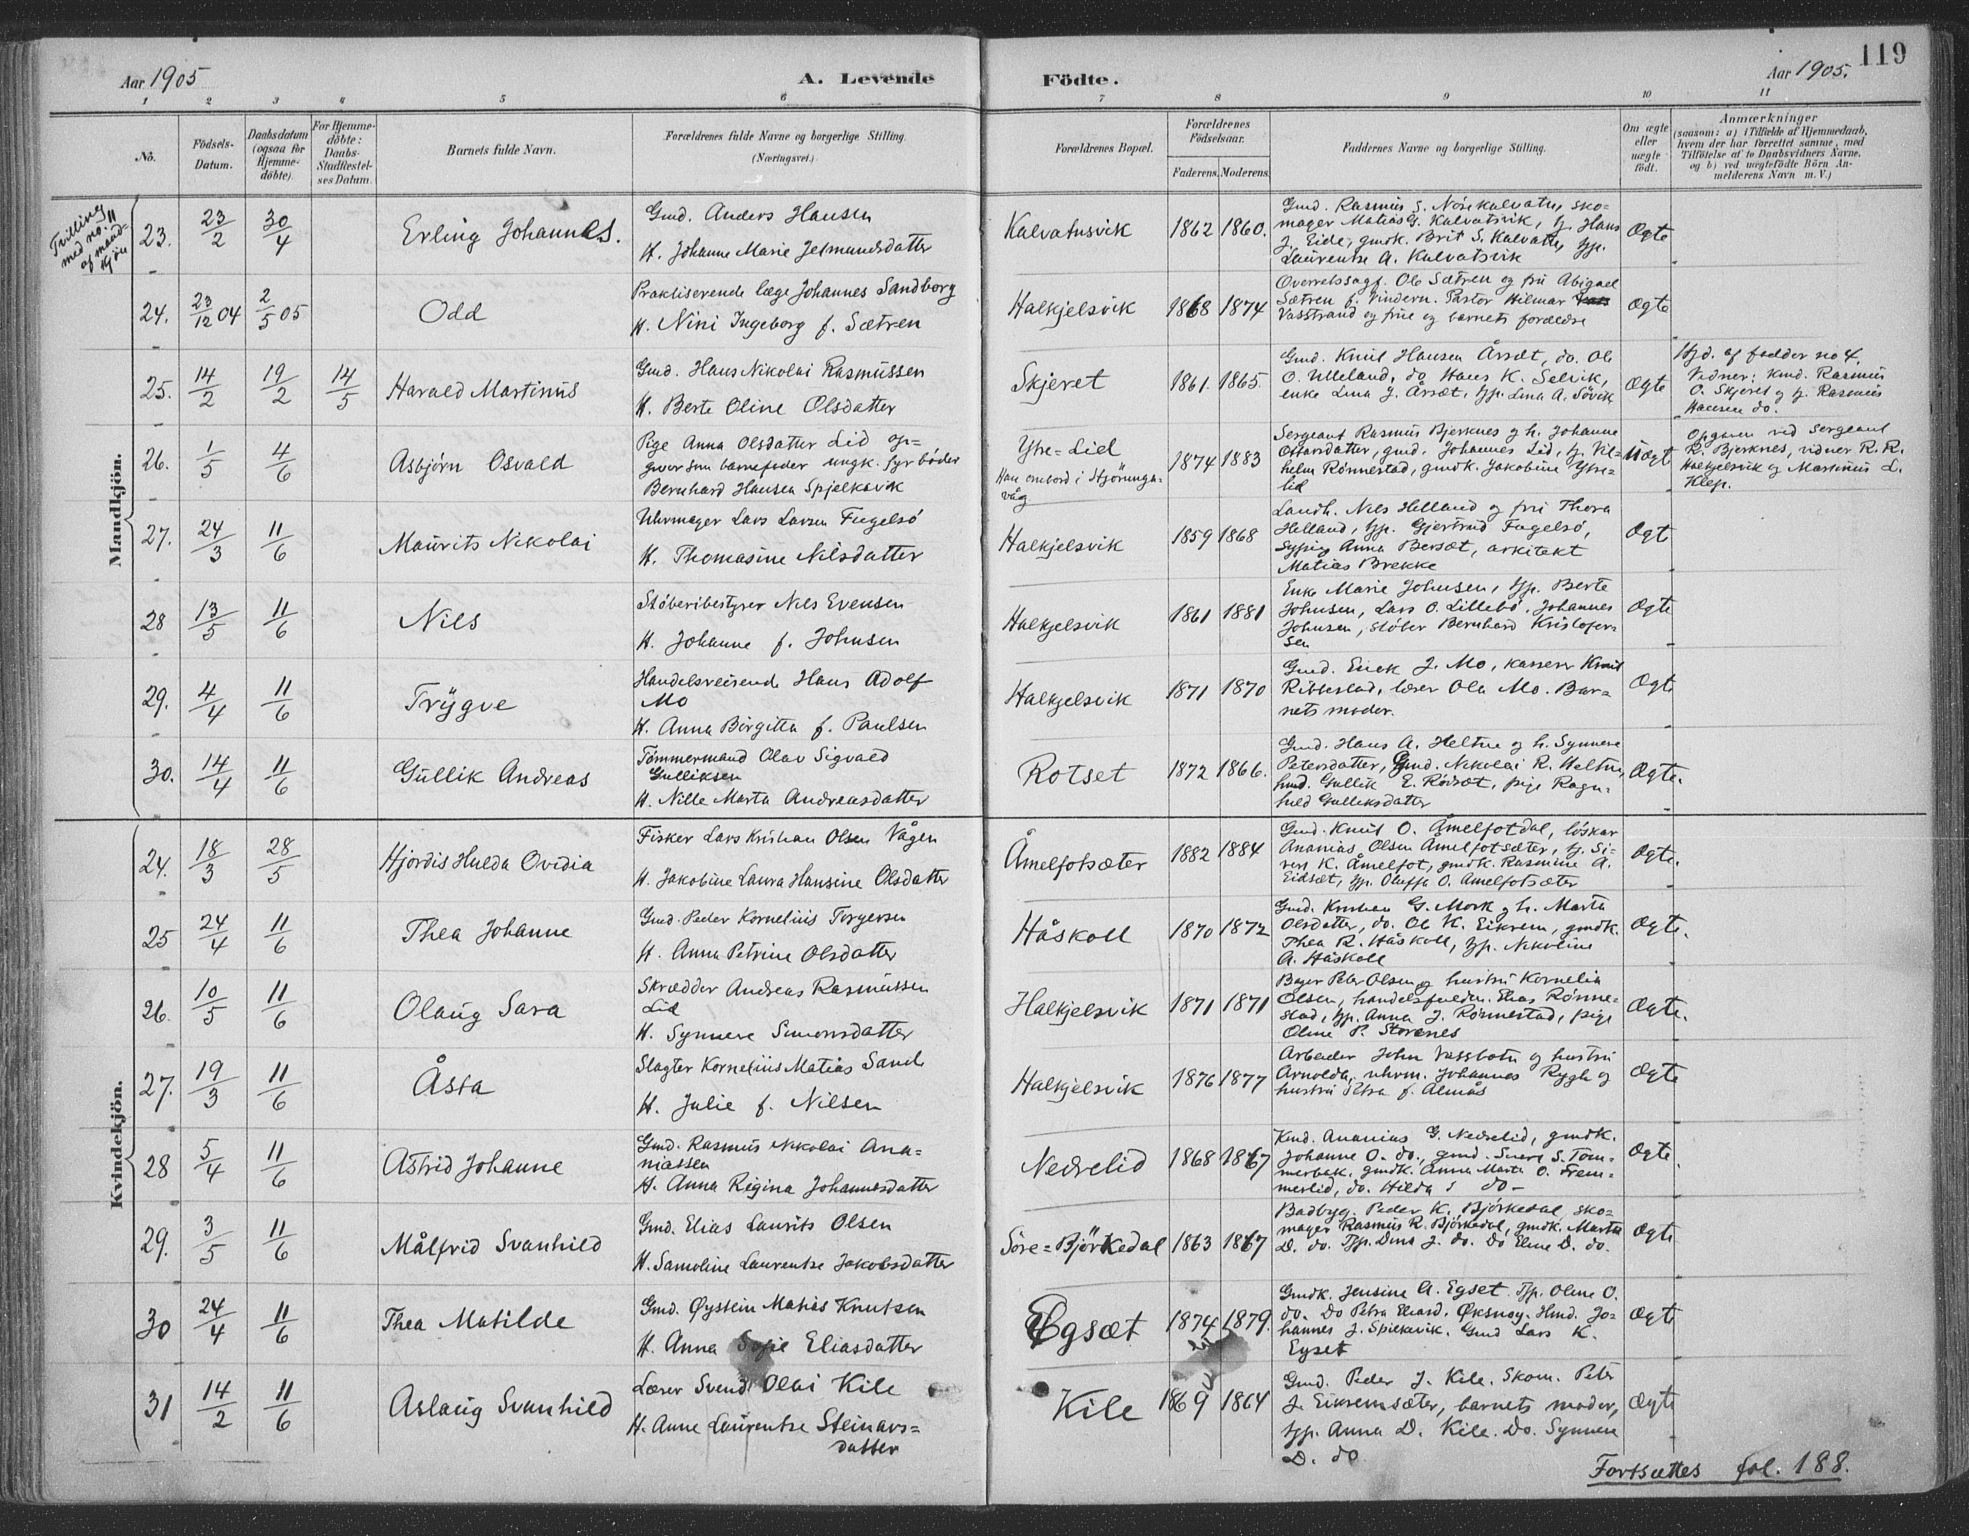 119
Aar 1905 A. Levende Födte. Aar 1905.
1 2 3 4 5 6 7 8 9 10 11
No.
Födsels-
Datum.
Daabsdatum
(ogsaa for
Hjemme-
döbte).
For Hjemme-
döbte:
Daabs-
Stadfæstel-
ses Datum.
Barnets fulde Navn.
Forældrenes fulde Navne og borgerlige Stilling.
(Næringsvei.)
Forældrenes Bopæl.
Forældrenes
Födselsaar.
Faderens. Moderens.
Faddernes Navne og borgerlige Stilling.
Om ægte
eller
uægte
födt.
Anmærkninger
(saasom: a) i Tilfælde af Hjemmedaab,
hvem der har forrettet samme, med
Tilföielse af to Daabsvidners Navne,
og b) ved uægtefödte Börn An-
melderens Navn m. V.)
Mandkjön.
Tvilling
med no. 11
af mand-
kjön
23. 23/2 30/4 Erling Johannes.
Gmd. Anders Hansen
H. Johanne Marie Jetmundsdatter
Kalvatnsvik 1862 1860.
Gmd. Rasmus S. Nörekalvatn, sko-
mager Matias G. Kalvatsvik, Hans
J. Eide, gmdk. Brit S. Kalvatn, pp.
Laurentse A. Kalvatsvik
Ægte
24. 23/12 04 2/5 05 Odd
Praktiserende læge Johannes Sandborg
H. Nini Ingeborg f. Sætren
Halkjelsvik 1868 1874
Overretssagf. Ole Sætren og fru Abigael
Sætren f. Vindern. Pastor Hilmar
Vasstrand og frue og barnets forældre
Ægte
25. 14/2 19/2 14/5 Harald Martinus
Gmd. Hans Nikolai Rasmussen
H. Berte Oline Olsdatter
Skjeret 1861. 1865.
Gmd. Knut Hansen Årsæt, do. Ole
O. Ulleland, do Hans K. Selvik,
enke Lina J. Årsæt, pp. Lina A. Sövik
Ægte
Hjd. af fadder no 4.
Vidner: kmd. Rasmus
O. Skjeret og Rasmus
Hansen do.
26. 1/5 4/6 Asbjörn Osvald
Pige Anna Olsdatter Lid op-
giver som barnefader ungk. fyrböder
Bernhard Hansen Spjelkavik
Ytre-Lid
Han ombord i Hjörunga-
våg
1874 1883
Sergeant Rasmus Bjerknes og h. Johanne
Ottarsdatter, gmd. Johannes Lid, Vil-
helm Rönnestad, gmdk. Jakobine Ytre-
lid
Uægt
Opgaven ved Sergeant
R. Bjerknes, vidner R. R.
Halkjelsvik og Martinus L.
Klep.
27. 24/3 11/6 Maurits Nikolai
Uhrmager Lars Larsen Fugelsö
H. Thomasine Nilsdatter
Halkjelsvik 1859 1868
Landh. Nils Helland og fru Thora
Helland, pp. Gjertrud Fugelsö,
sypige Anna Bersæt, arkitekt
Matias Brekke
Ægt
28 13/5 11/6 Nils
Stöberibestyrer Nils Evensen
H. Johanne f. Johnsen
Halkjelsvik 1861 1881
Enke Marie Johnsen, pp. Berte
Johnsen, Lars O. Lillebö. Johannes
Johnsen, stöber Bernhard Kristofer-
sen
Ægte
29. 4/4 11/6 Trygve
Handelsreisende Hans Adolf
Mo
H. Anna Birgitta f. Paulsen
Halkjelsvik 1871 1870
Gmd. Erick J. Mo, kasserer Knut
Ribbestad, lærer Ola Mo. Bar-
nets moder.
Ægte
30. 14/4 11/6 Gullik Andreas
Tömmermand Olav Sigvald
Gulliksen
H. Nille Marta Andreasdatter
Rotset 1872 1866.
Gmd. Hans A. Heltne og h. Synnere
Petersdatter, Gmd. Nikolai R. Heltne,
hmd. Gullik E. Rotsæt, pige Ragn-
hild Gulliksdatter
Ægte.
Kvindekjön.
24. 18/3 28/5 Hjördis Hulda Ovidia
Fisker Lars Kristian Olsen Vågen
H. Jakobine Laura Hansine Olsdatter
Åmelfotsæter 1882 1884
Gmd. Knut O. Åmelfotdal, löskar
Ananias Olsen Åmelfotsæter, Si-
ren K. Åmelfot, gmdk. Rasmine A.
Eidsæt, pp. Oluffa O. Amelfotsæter
Ægte.
25 24/4 11/6 Thea Johanne
Gmd. Peder Kornelius Torgersen
H. Anna Petrine Olsdatter
Håskoll 1870 1872
Gmd. Kristian G. Mork og h. Marta
Olsdatter, do. Ole K. Eikrem, gmdk.
Thea R. Håskoll, pp. Nikoline
A. Håskoll
Ægte.
26. 10/5 11/6 Olaug Sara
Skrædder Andreas Rasmussen
Lid
H. Synnere Simonsdatter
Halkjelsvik 1871 1871
Bager Peter Olsen og hustru Kornelia
Olsen, handelsfuldm. Elias Rönne-
stad, pp. Anna J. Rönnestad, pige
Oline P. Storenes
Ægte.
27. 19/3 11/6 Åsta
Slagter Kornelius Matias Sand
H. Julie f. Nilsen
Halkjelsvik 1876 1877
Arbeider John Vassbotn og hustru
Arnolda, uhrm. Johannes Rygh og
hustru Petra f. Almås
Ægte
28 5/4 11/6 Astrid Johanne
Gmd. Rasmus Nikolai Ana-
niassen
H. Anna Regina Johannesdatter
Nedrelid 1868 1867
Kmd. Ananias G. Nedrelid, gmdk.
Johanne O. do., gmd. Sivert S. Töm-
merbak, gmdk. Anna Marta O. Frem-
merlid, do. Hilda S do-
Ægte.
29. 3/5 11/6 Målfrid Svanhild
Gmd. Elias Laurits Olsen
H. Samoline Laurentse Jakobsdatter
Söre-Björkedal 1863 1867
Baadbyg. Peder K. Björkedal, sko-
mager Rasmus R. Björkedal, gmdk. Marta
D. do. Pp. Dina J. do. Do Eline D. do.
Ægte
30 24/4 11/6 Thea Matilde
Gmd. Øystein Matias Knutsen
H. Anna Sofie Eliasdatter
Egsæt 1874 1879.
Gmdk. Jensine A. Egset. Pp. Oline O.
do. Do Petra Eliasd. Øksnøy. Hmd. Jo-
hannes J. Spilkevik. Gmd Lars K.
Egset
Ægte
31 14/2 11/6 Aslaug Svanhild
Lærer Svend Olai Kile
H. Anne Laurentse Steinars-
datter
Kile 1869 1864
Gmd. Peder J. Kile. Skom. Peter
J. Eikremsæter, barnets moder,
pp. Anna D. Kile. Do. Synnere
D. do
Ægte
Fortsættes fol. 188.